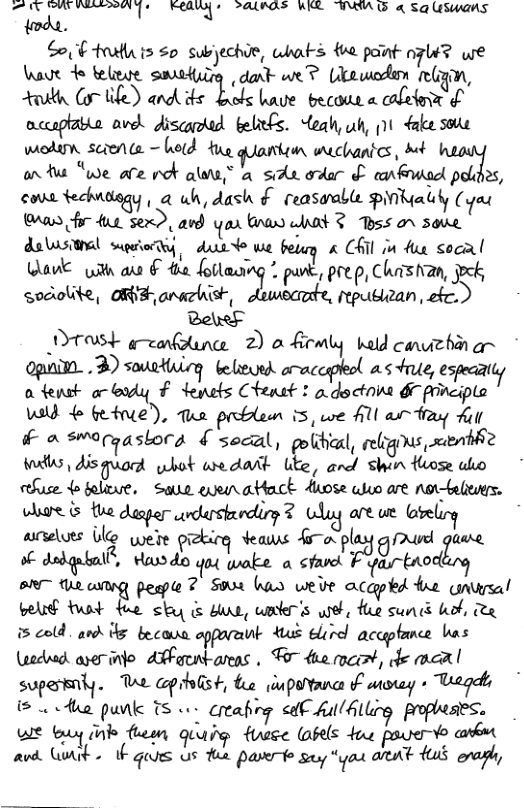 it isn't necessary. Really. Sounds like truth is a salesmans
trade.
So, if truth is so subjective, what's the point right? we
have to believe something, don't we? Like modern religion,
truth (or life) and its facts have become a cafeteria of
acceptable and discarded beliefs. Yeah, uh, I'll take some
modern science - hold the quantum mechanics, but heavy
on the "we are not alone," a side order of conformed politics,
some technology, a uh, dash of reasonable spirituality (you
know, for the sex), and you know what? Toss on some
delusional superiority, due to me being a (fill in the social
blank with one of the following: punk, prep, Christian, jock,
socialite, artist, anarchist, democrate, republican, etc.)
Belief
1) trust or confidence 2) a firmly held conviction or
opinion. 3) something believed or accepted as true, especially
a tenet or body of tenets (tenet: a doctrine or principle
held to be true). The problem is, we fill our tray full
of a smorgasbord of social, political, religius, scientific
truths, disguard what we don't like, and shun those who
refuse to believe. Some even attack those who are non-believers.
where is the deeper understanding? Why are we labeling
ourselves like we're picking teams for a play ground game
of dodgeball? How do you make a stand if your knocking
over the wrong people? Some how we've accepted the universal
belief that the sky is blue, water is wet, the sun is hot, ice
is cold. and its become apparant this blind acceptance has
leeched over into different areas. For the racist, its racial
superiority. The capitolist, the importance of money. The goth
is... the punk is... creating self fullfilling prophesies.
we buy into them giving these labels the power to conform
and limit. it gives us the power to say "you aren't this enough,